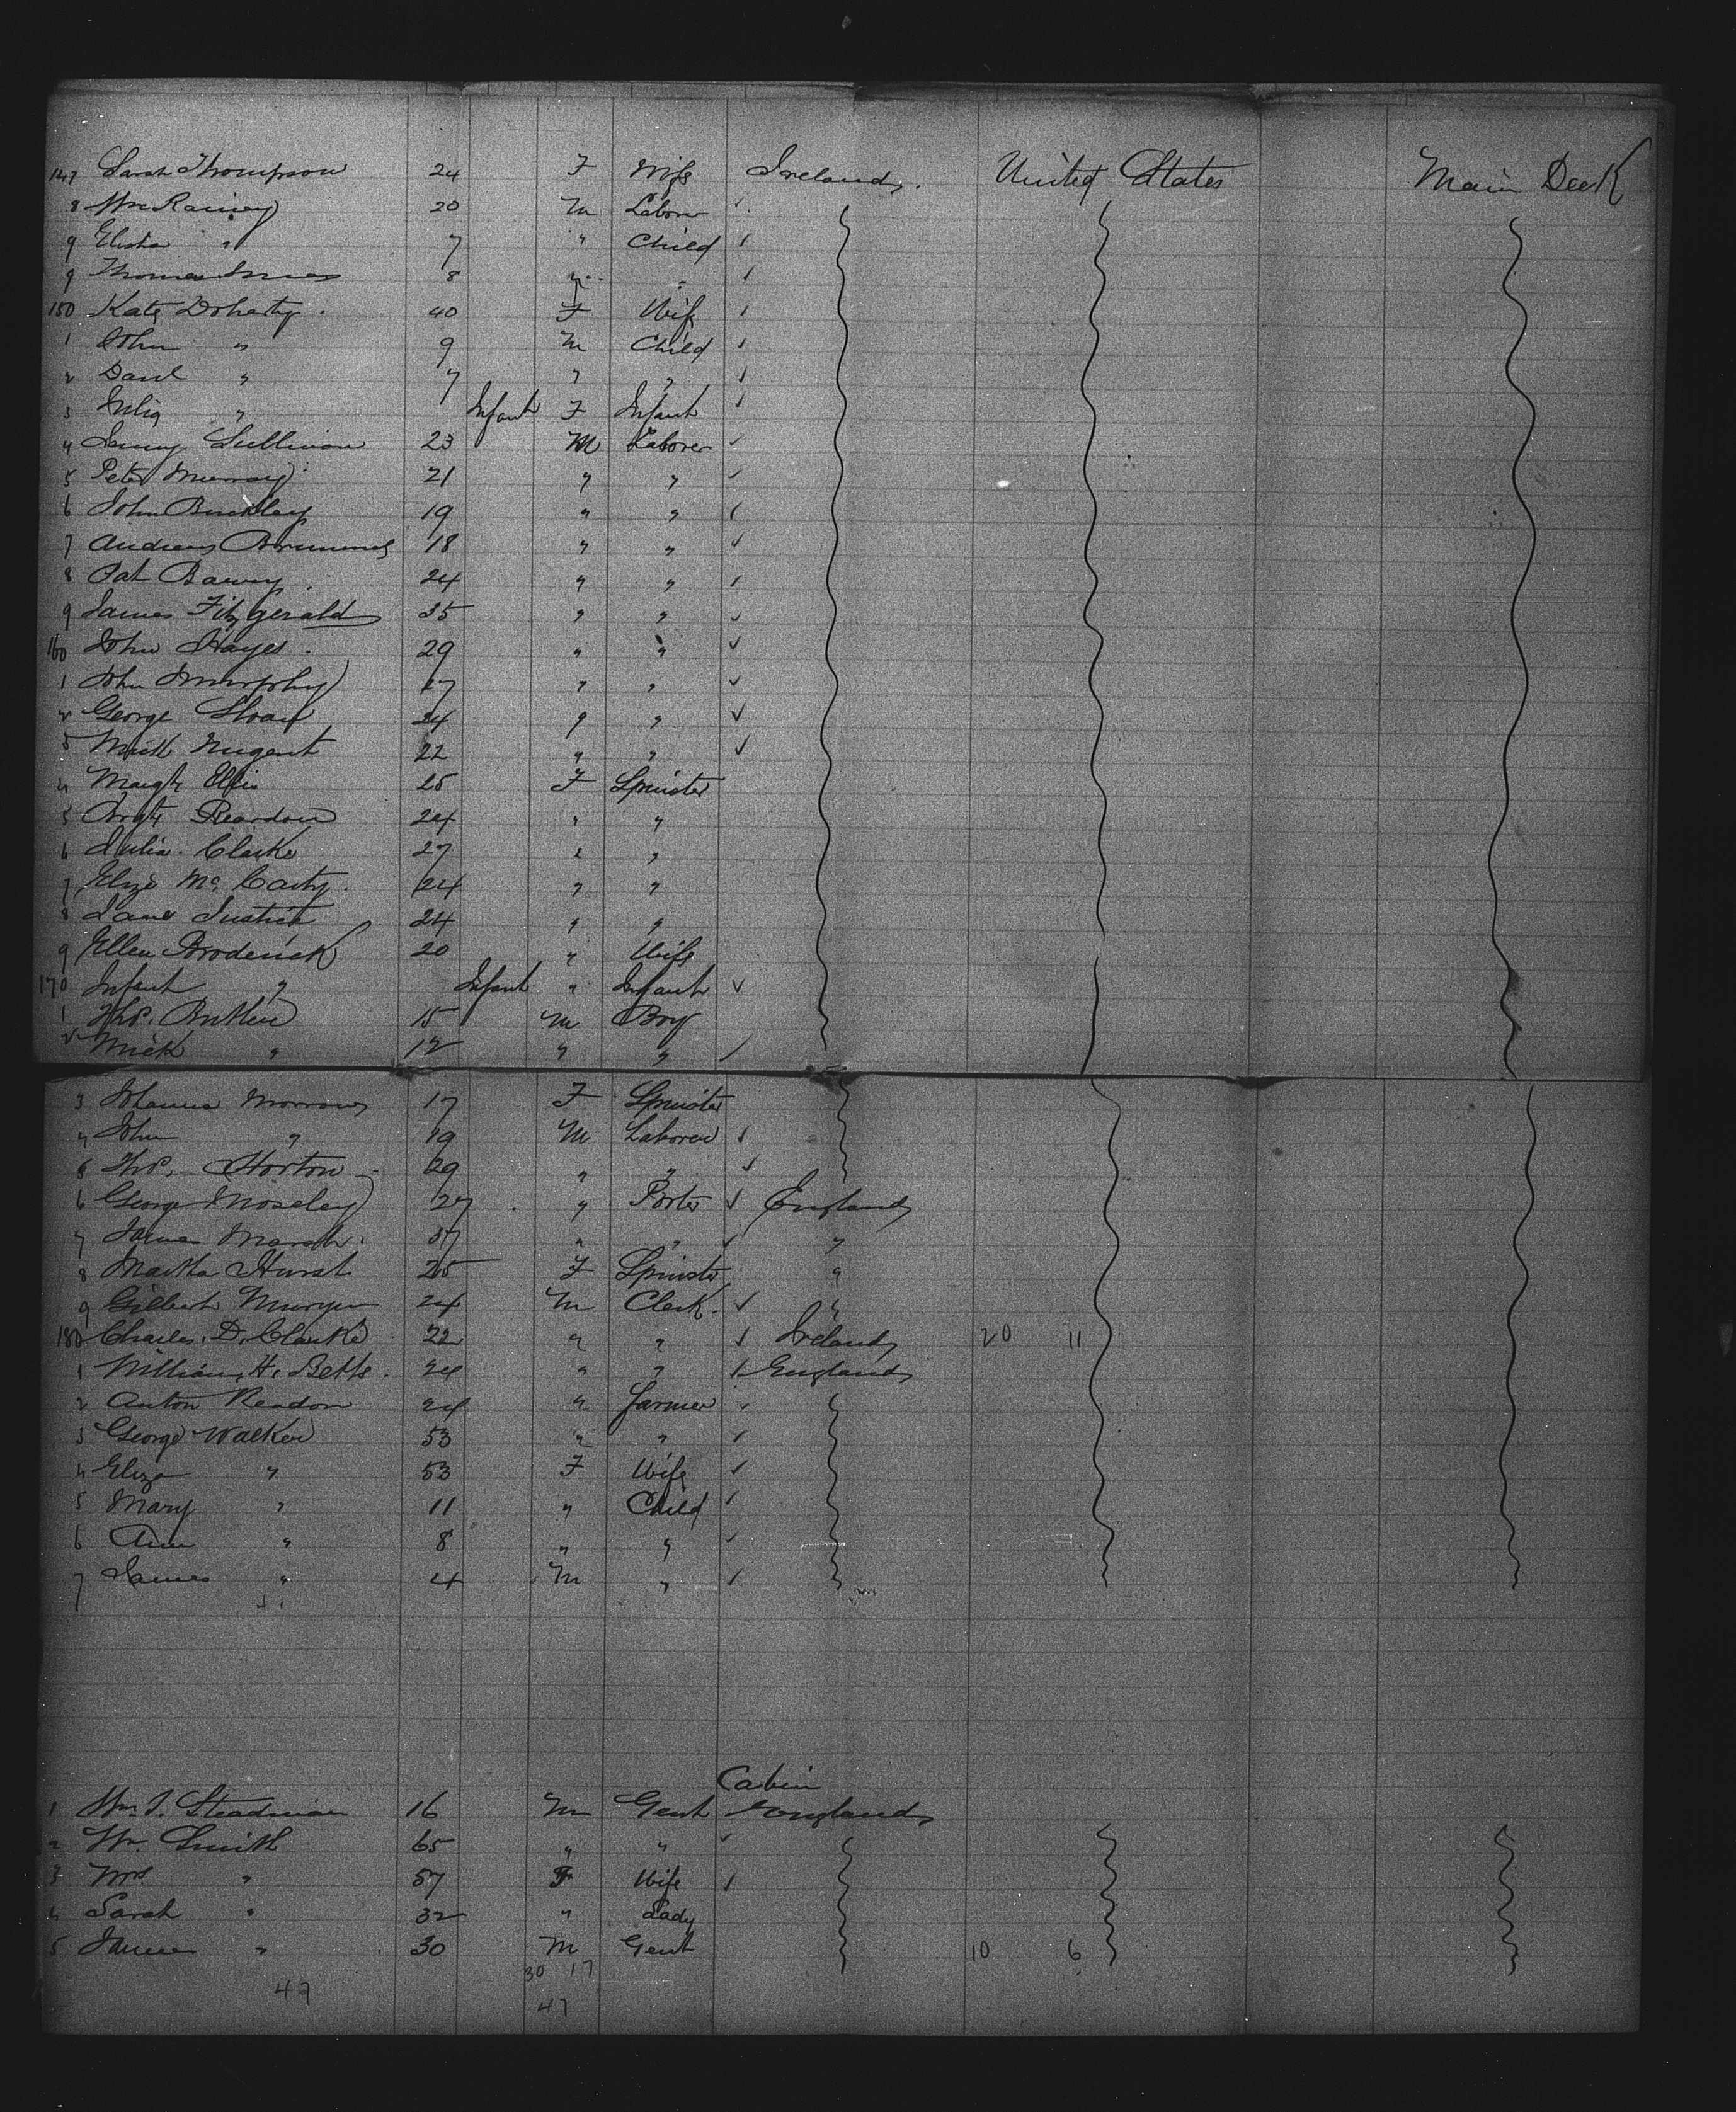 147 Sarah Thompson 24 F Wife Ireland. United States Main Deck
8 Wm Rainey 20 M Labor
9 Elisha " 7 " Child
9 Thomas 8 " "
150 Kate Doherty. 40 F Wife
1 John " 9 M Child
2 Danl " 7 " "
3 Julia " Infant F Infant
4 Sullivan 23 M Laborer
5 Peter Murray 21 " "
6 John Buckley 19 " "
7 Andrew 18 " "
8 Pat 24 " "
9 James Fitzgerald 35 " "
160 John Hayes. 29 " "
1 John Murphy 27 " "
2 George Sloan 24 " "
3 Mick Nugent 22 " "
4 Margt Ellis 25 F Spinster
5 Reardon 24 " "
6 Julia Clarke 27 " "
7 Eliza Mc Carty. 24 " "
8 Jane Justice 24 " "
9 Ellen Broderick 20 " Wife
170 Infant " Infant " Infant
1 Thos. Butler 15 M Boy
2 Mick " 12 " "
3 Johanna Morrow 17 F Spinster
4 John " 19 M Laborer
5 Thos. Horton 29 " "
6 George Moseley 27 " Porter England
7 James Marsh. 37 " " "
8 Martha Hurst 25 F Spinster "
9 Gilbert 24 M Clerk. "
180 Charles. D. Clarke 22 " " Ireland 20 11
1 William. H. Betts. 24 " " England
2 Anton 24 " Farmer
3 George Walker 53 " "
4 Eliza " 53 F Wife
5 Mary " 11 " Child
6 Ann " 8 " "
7 James " 4 M "
Cabin
1 Wm. J. Steadman 16 M Gent England
2 Wm. Smith 65 " "
3 Mrs " 57 F Wife
4 Sarah " 32 " Lady
5 James " 30 M Gent 10 6
30 17
49
47